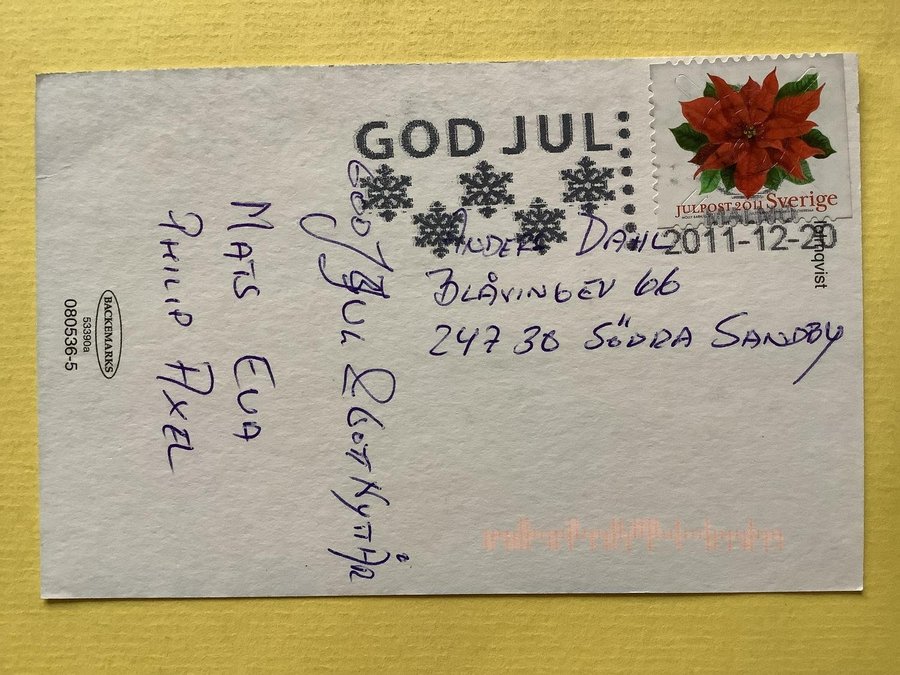 GOD JUL
JULPOST 2011 Sverige
MALMÖ
2011-12-20
ANDERS DAHL
BLÅVINGEV 66
247 36 SÖDRA SANDBY
GOD JUL & GOTT NYTT ÅR
MATS EVA
PHILIP AXEL
BACKEMARKS
53390a
080536-5